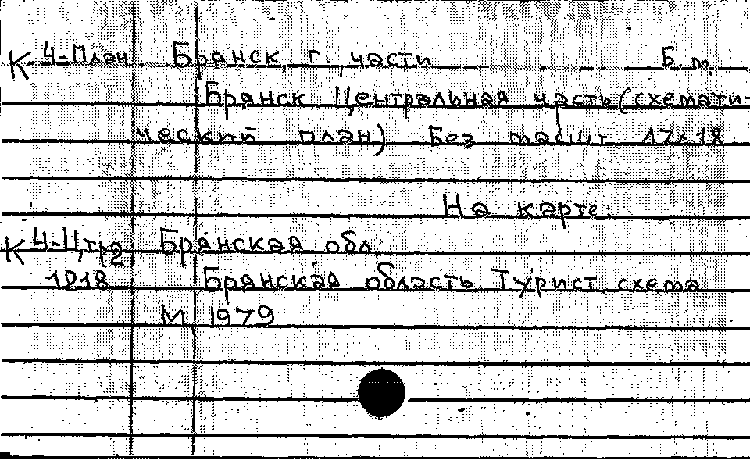 К 4-План Брянск, г. части Б. м.
Брянск Центральная часть (схемати-
ческий план) Без масшт. 17х18
На карте:
К 4-Ц,тр2 Брянская обл.
1818 Брянская область Турист. схема
М, 1979